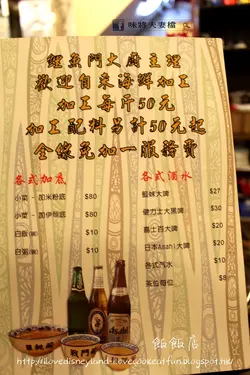 味將夫妻檔
鯉魚門大廚主理
歡迎自來海鮮加工
加工每斤50元
加工配料另計50元起
全線免加一服務費
各式加底
小菜 - 加米粉底 $80
小菜 - 加伊麵底 $80
白飯(碗) $10
白粥(碗) $10
各式酒水
藍妹大啤 $27
健力士大黑啤 $30
嘉士百大啤 $20
日本Asahi大啤 $20
各式汽水 $10
茶位每位 $8
飯飯店
http://ilovedisneyland-ilovecookeatfun.blogspot.hk/